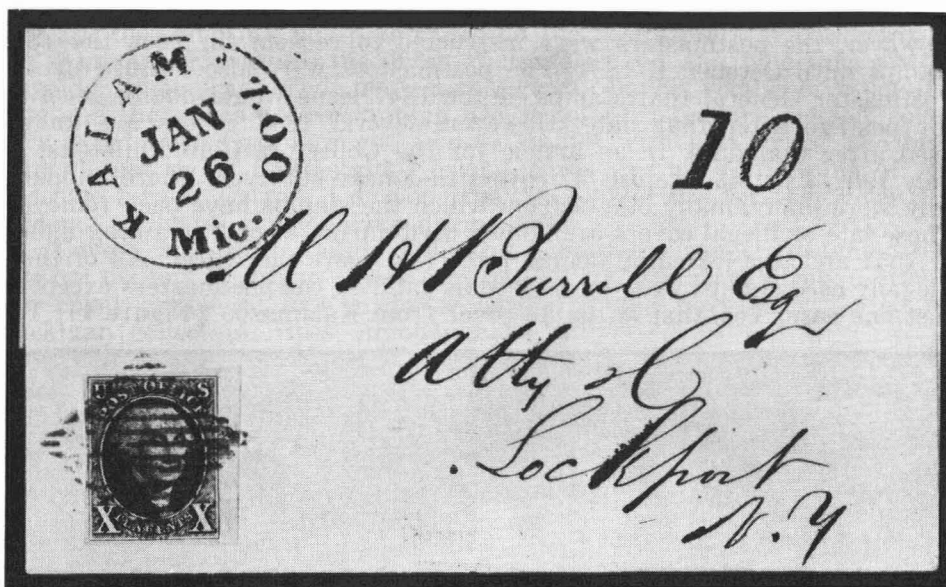 KALAMAZOO
JAN
26
Mic.
10
M H Burrell Esq
Atty &C
Lockport
N.Y
POST OFFICE
X X